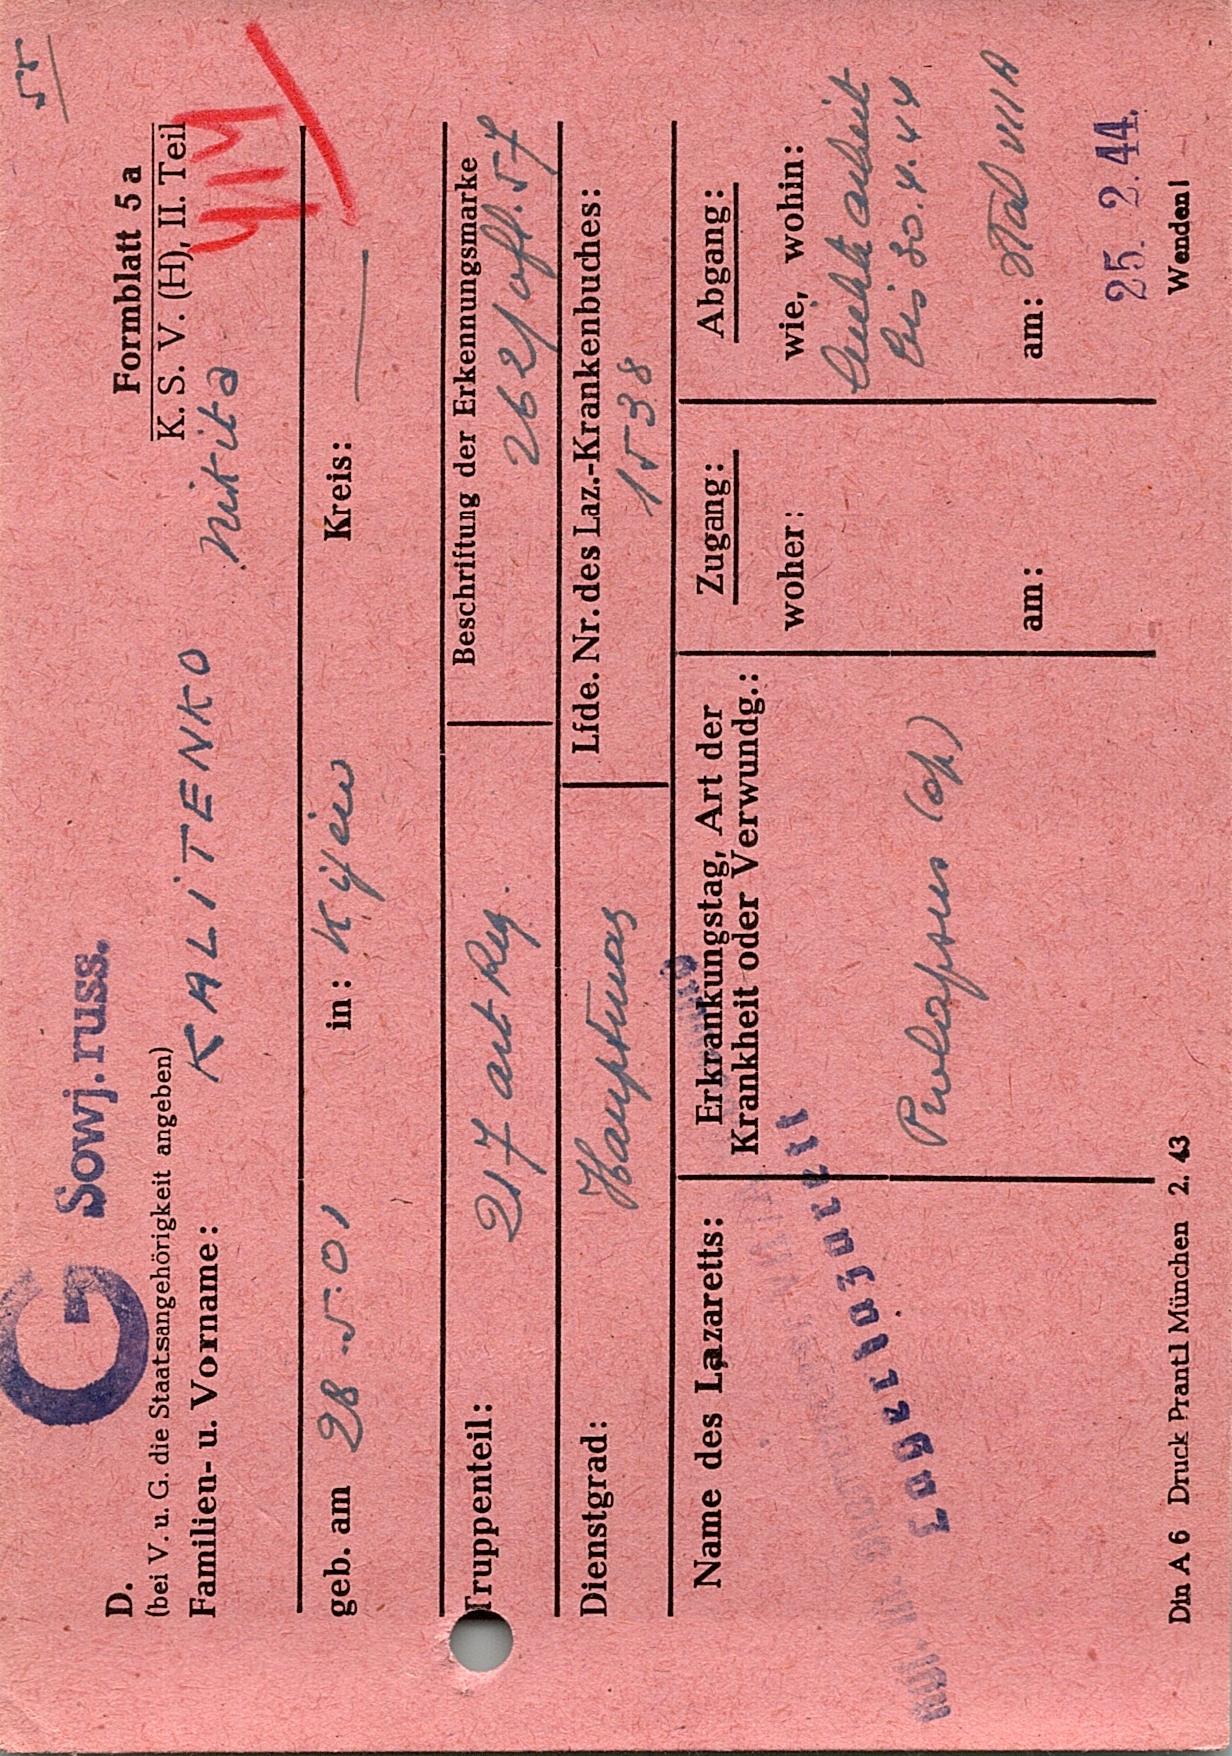 55
G Sowj. russ.
D.
Formblatt 5 a
(bei V. u. G. die Staatsangehörigkeit angeben)
K. S. V. (H), II. Teil
Familien- u. Vorname:
KALiTENKO Nikita
geb. am 28.5.01 in: Kijew Kreis: —
Truppenteil: 217 art Reg.
Beschriftung der Erkennungsmarke
262/off.57
Dienstgrad: Hauptman
Lfde. Nr. des Laz.-Krankenbuches:
1538
Name des Lazaretts:
Lagerlazarett
Erkrankungstag, Art der
Krankheit oder Verwundg.:
Prolapsus (op.)
Zugang:
woher:
am:
Abgang:
wie, wohin:
Leichte arbeit
bis 30.4.44
Stal VIIA
am:
25. 2. 44.
Din A 6 Druck Prantl München 2. 43
Wenden!